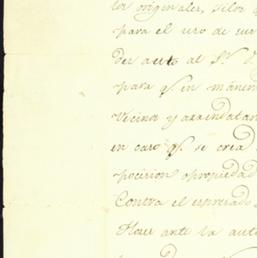 los originales, silos
para el uso de sus
de auto al Sr. D
para q.e en manera
vecinos y arrendatar
en caso q.e se crea
posicion o propiedad
Contra el espresado
Haver ante la auto